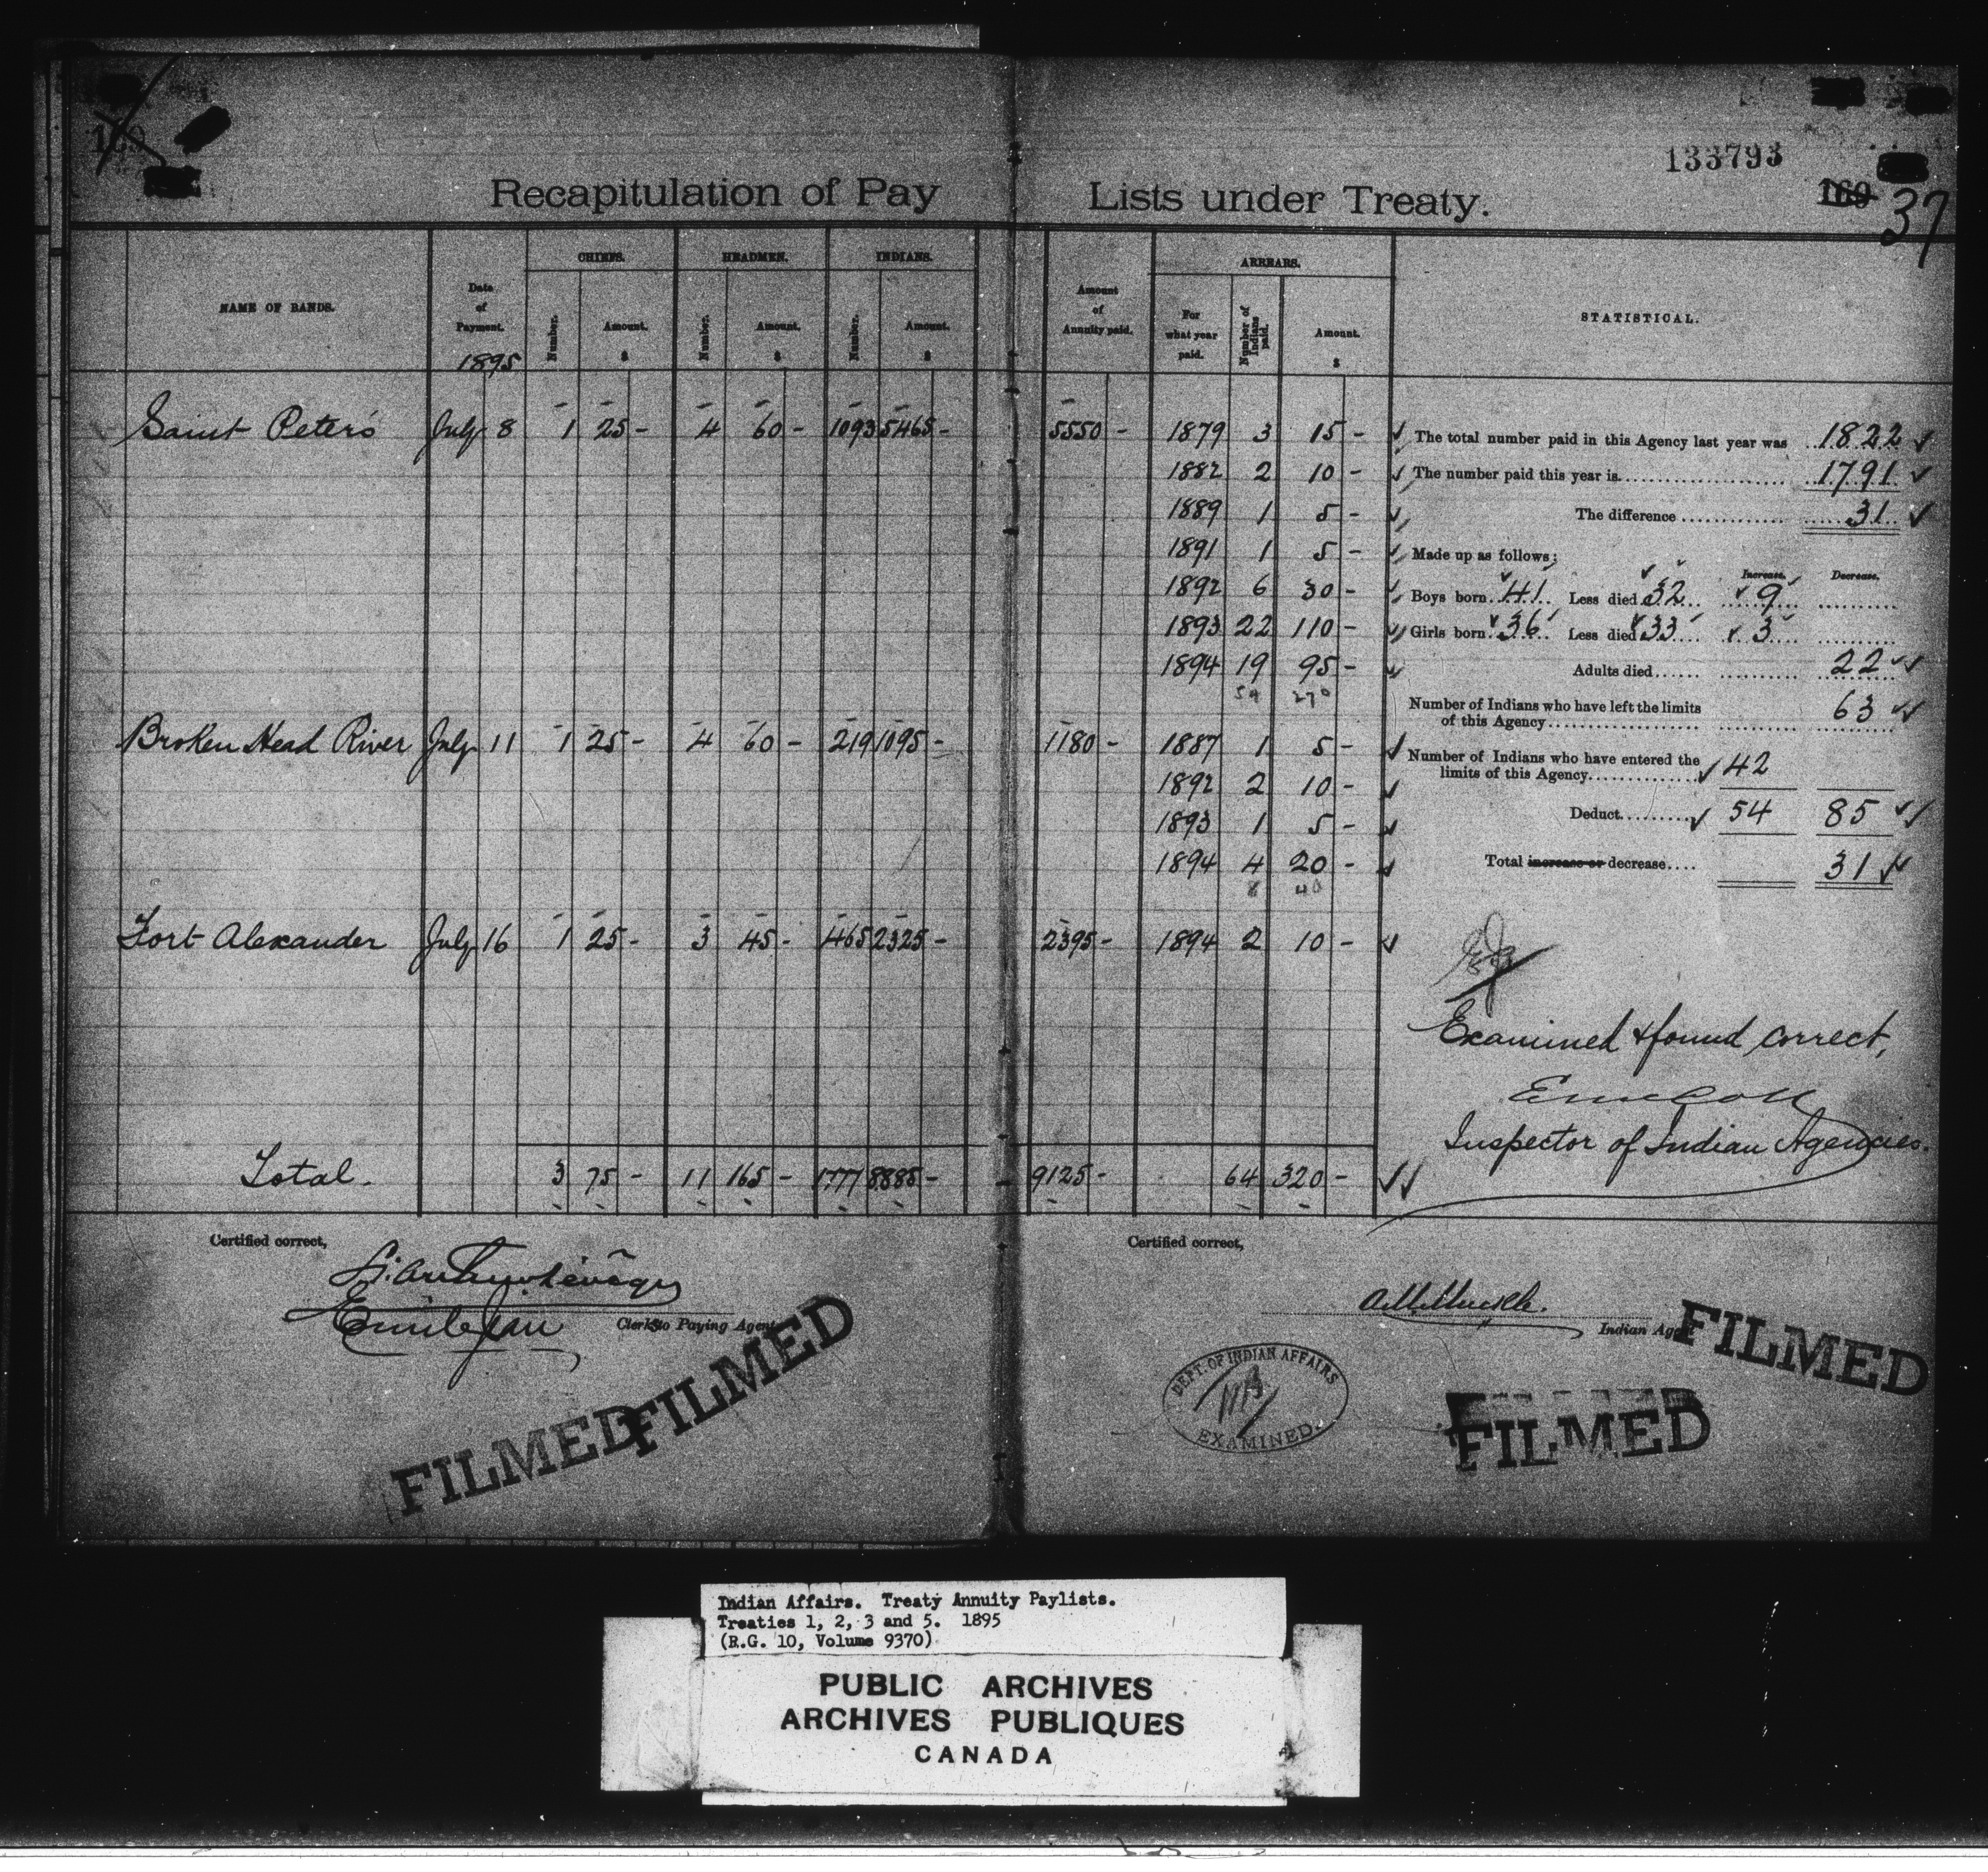 133793
169
169 37
Recapitulation of Pay Lists under Treaty.
NAME OF BANDS.
Date of Payment. 1895
CHIEFS. Number. Amount. $
HEADMEN. Number. Amount. $
INDIANS. Number. Amount. $
Amount of Annuity paid.
ARREARS. For what year paid. Number of Indians paid. Amount. $
STATISTICAL.
Saint Peter's July 8 1 25 - 4 60 - 1093 5465 - 5550 - 1879 3 15 -
1882 2 10 -
1889 1 5 -
1891 1 5 -
1892 6 30 -
1893 22 110 -
1894 19 95 -
54 270
Broken Head River July 11 1 25 - 4 60 - 219 1095 - 1180 - 1887 1 5 -
1892 2 10 -
1893 1 5 -
1894 4 20 -
8 40
Fort Alexander July 16 1 25 - 3 45 - 465 2325 - 2395 - 1894 2 10 -
Total. 3 75 - 11 165 - 1777 8885 - 9125 - 64 320 -
The total number paid in this Agency last year was 1822
The number paid this year is 1791
The difference 31
Made up as follows;
Increase. Decrease.
Boys born 41 Less died 32 9
Girls born 36 Less died 33 3
Adults died 22
Number of Indians who have left the limits
of this Agency 63
Number of Indians who have entered the
limits of this Agency 42
Deduct 54 85
Total increase or decrease 31
Examined & found correct,
Inspector of Indian Agencies.
Certified correct,
Emile Jean
Clerks to Paying Agent
Certified correct,
A.M. Muckle.
Indian Agent
DEPT. OF INDIAN AFFAIRS
EXAMINED.
FILMED
FILMED
FILMED
FILMED
Indian Affairs. Treaty Annuity Paylists.
Treaties 1, 2, 3 and 5. 1895
(R.G. 10, Volume 9370)
PUBLIC ARCHIVES
ARCHIVES PUBLIQUES
CANADA